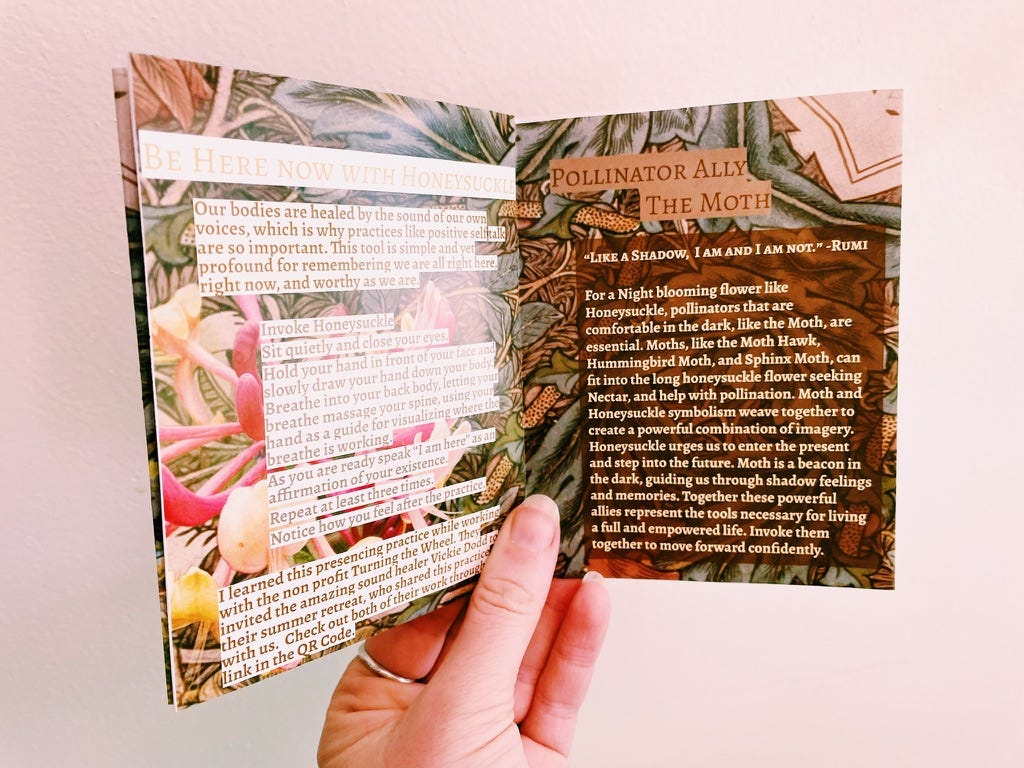 Be Here now with Honeysuckle
Our bodies are healed by the sound of our own
voices, which is why practices like positive selftalk
are so important. This tool is simple and yet
profound for remembering we are all right here,
right now, and worthy as we are.
Invoke Honeysuckle
Sit quietly and close your eyes.
Hold your hand in front of your face and
slowly draw your hand down your body.
Breathe into your back body, letting your
breathe massage your spine, using your
hand as a guide for visualizing where the
breathe is working.
As you are ready speak "I am here" as an
affirmation of your existence.
Repeat at least three times.
Notice how you feel after the practice.
I learned this presencing practice while working
with the non profit Turning the Wheel. They
invited the amazing sound healer Vickie Dodd to
their summer retreat, who shared this practice
with us. Check out both of their work through
link in the QR Code.
Pollinator Ally
The Moth
"Like a Shadow, I am and I am not." -Rumi
For a Night blooming flower like
Honeysuckle, pollinators that are
comfortable in the dark, like the Moth, are
essential. Moths, like the Moth Hawk,
Hummingbird Moth, and Sphinx Moth, can
fit into the long honeysuckle flower seeking
Nectar, and help with pollination. Moth and
Honeysuckle symbolism weave together to
create a powerful combination of imagery.
Honeysuckle urges us to enter the present
and step into the future. Moth is a beacon in
the dark, guiding us through shadow feelings
and memories. Together these powerful
allies represent the tools necessary for living
a full and empowered life. Invoke them
together to move forward confidently.